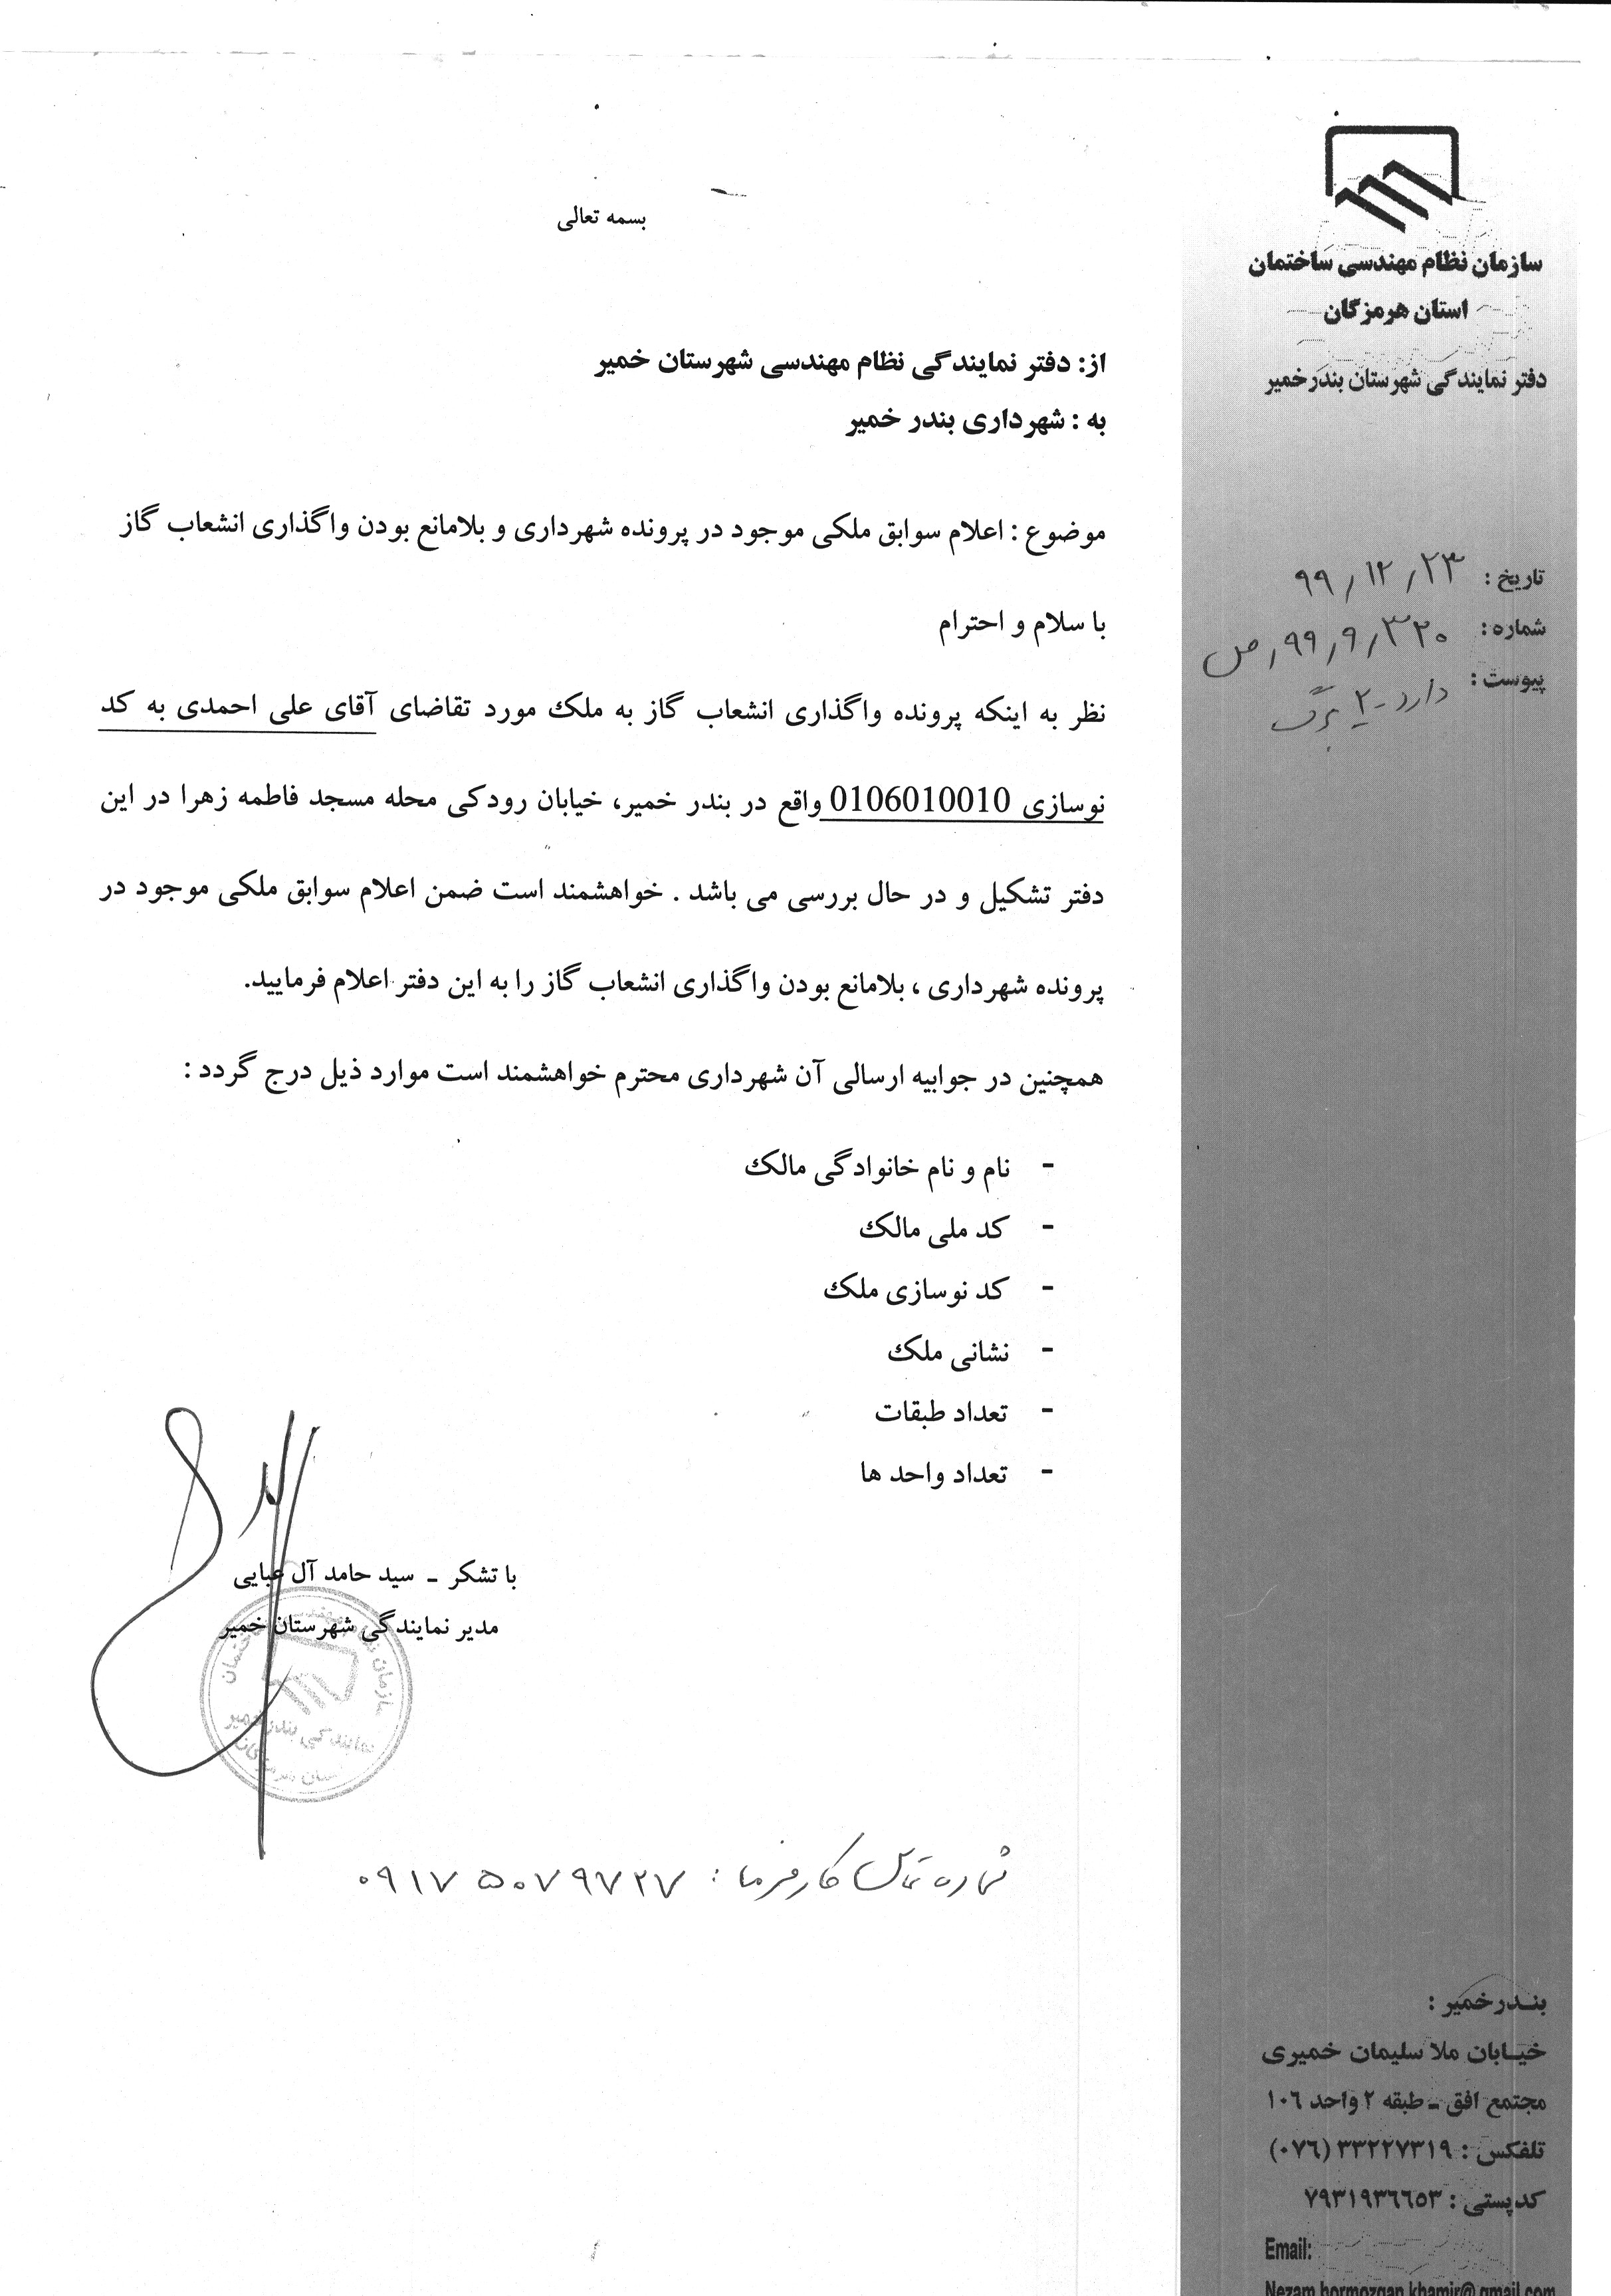 بسمه تعالی
سازمان نظام مهندسی ساختمان
استان هرمزگان
دفتر نمایندگی شهرستان بندرخمیر
تاریخ : ۹۹/۱۲/۲۳
شماره : ۹۹/۹/۳۲۰/ص
پیوست : دارد - ۲ برگ
از: دفتر نمایندگی نظام مهندسی شهرستان خمیر
به : شهرداری بندر خمیر
موضوع : اعلام سوابق ملکی موجود در پرونده شهرداری و بلامانع بودن واگذاری انشعاب گاز
با سلام و احترام
نظر به اینکه پرونده واگذاری انشعاب گاز به ملک مورد تقاضای آقای علی احمدی به کد
نوسازی 0106010010 واقع در بندر خمیر، خیابان رودکی محله مسجد فاطمه زهرا در این
دفتر تشکیل و در حال بررسی می باشد . خواهشمند است ضمن اعلام سوابق ملکی موجود در
پرونده شهرداری ، بلامانع بودن واگذاری انشعاب گاز را به این دفتر اعلام فرمایید.
همچنین در جوابیه ارسالی آن شهرداری محترم خواهشمند است موارد ذیل درج گردد :
- نام و نام خانوادگی مالک
- کد ملی مالک
- کد نوسازی ملک
- نشانی ملک
- تعداد طبقات
- تعداد واحد ها
با تشکر - سید حامد آل عبایی
مدیر نمایندگی شهرستان خمیر
شماره تماس کارفرما : ۰۹۱۷ ۵۰۷۹۷۲۷
بندرخمیر :
خیابان ملا سلیمان خمیری
مجتمع افق - طبقه ۲ واحد ۱۰۶
تلفکس : ۳۳۲۲۷۳۱۹ (۰۷۶)
کدپستی : ۷۹۳۱۹۳۶۶۵۳
Email:
Nezam.hormozgan.khamir@gmail.com